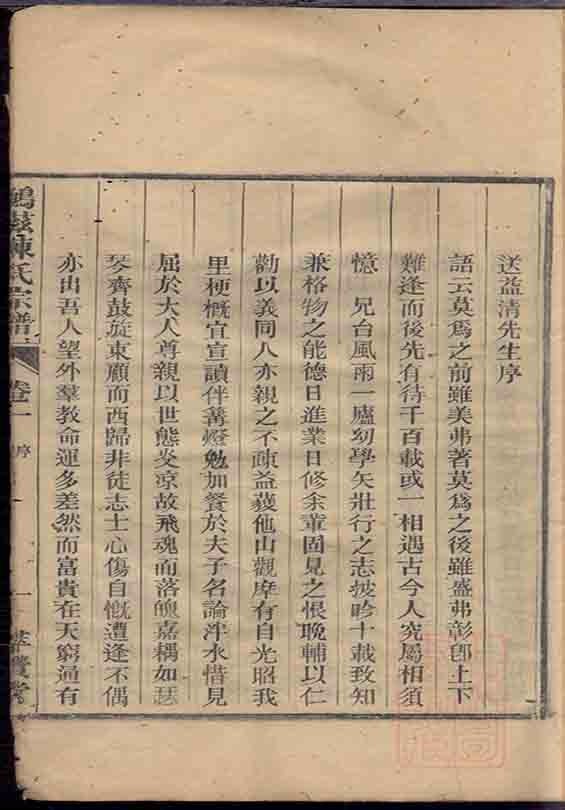 送益清先生序
語云莫爲之前雖美弗著莫爲之後雖盛弗彰卽上下
難逢而後先有待千百載或一相遇古今人究屬相須
憶　兄台風雨一廬幼學矢壯行之志披吟十載致知
兼格物之能德日進業日修余輩固見之恨晚輔以仁
勸以義同人亦親之不疎益羙他山觀摩有自光昭我
里梗概宜宣讀伴篝燈勉加餐於夫子名論泮水惜見
屈於大人尊親以世態炎凉故飛魂而落魄嘉耦如瑟
琴齊鼓旋東顧而西歸非徒志士心傷自慨遭逢不偶
亦由吾人望外羣教命運多差然而富貴在天窮通有
陳氏宗譜
卷一
序
一